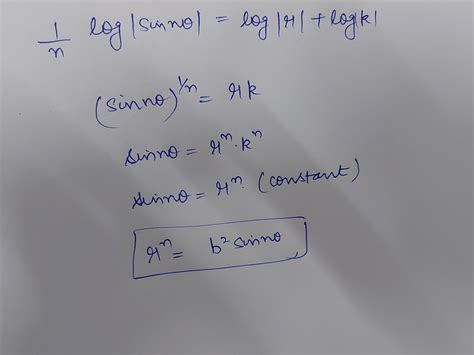 1/n log|sinnθ| = log|r| + log|k|
(sinnθ)^1/n = rk
sinnθ = r^n · k^n
sinnθ = r^n · (constant)
r^n = b² sinnθ